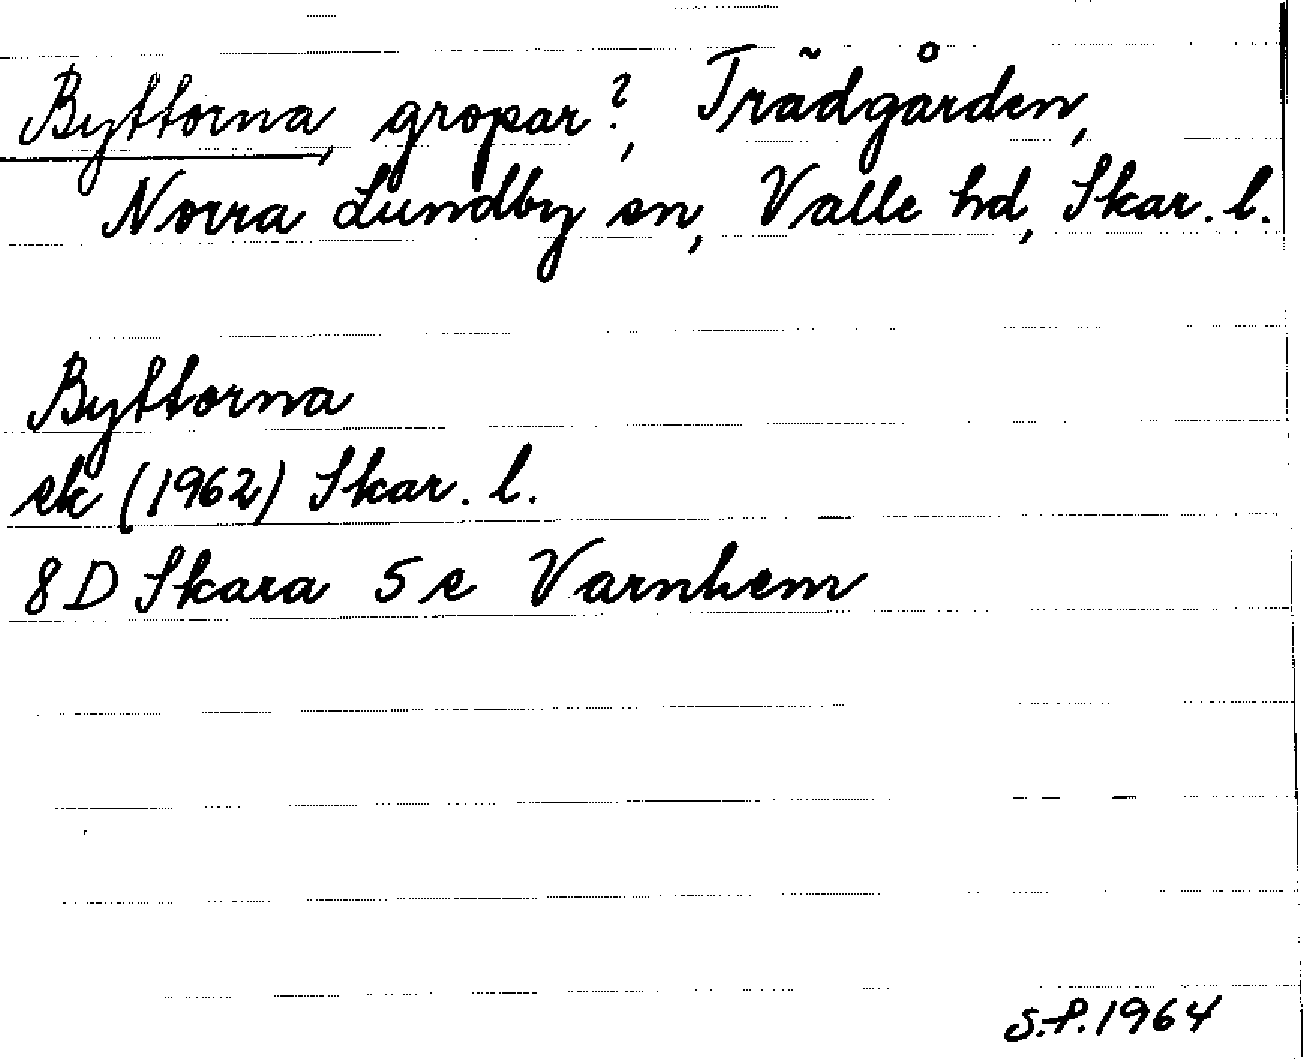 Byttorna, gropar?, Trädgården,
Norra Lundby sn, Valle hd, Skar. l.
Byttorna
ek (1962) Skar. l.
8D Skara 5e Varnhem
S.P. 1964